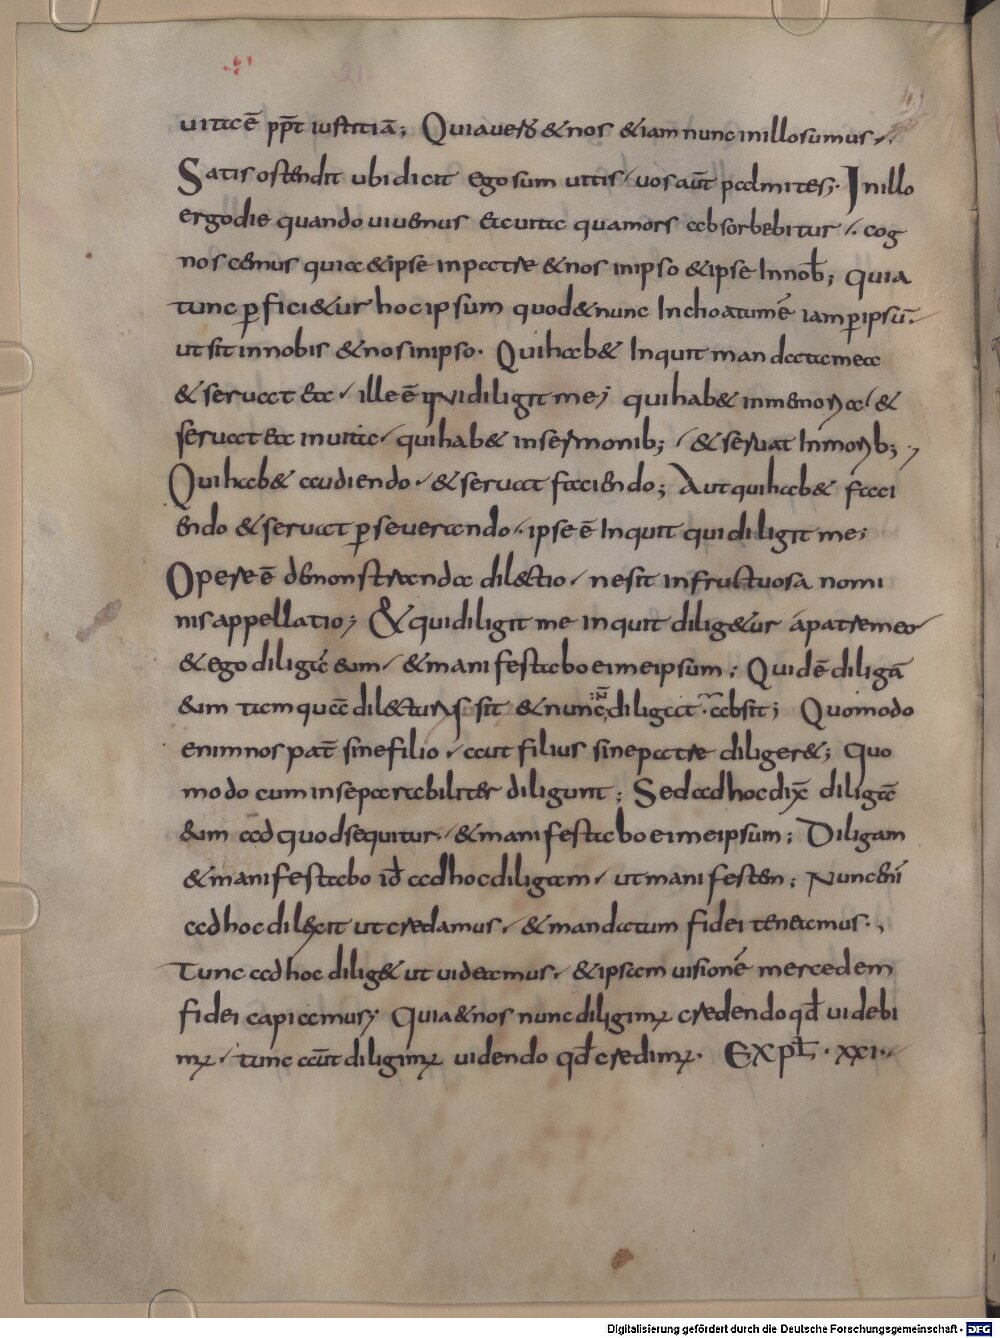 uita ē ꝓpt̄ iustitiā; Quia uero &nos &iam nunc in illo sumus,
Satis ostendit ubi dicit ego sum uitis uos aut̄ palmites; In illo
ergo die quando uiuemus ea uita qua mors absorbebitur. cog
noscemus quia &ipse in patre &nos in ipso &ipse In nob̄; quia
tunc ꝑfici&ur hoc ipsum quod &nunc Inchoatum ē iam ꝑ ipsū.
ut sit in nobis &nos in ipso. Qui hab& Inquit mandata mea
&seruat ea. ille ē qui diligit me; qui hab& in memoria &
seruat ea in uita. qui hab& in sermonib; &seruat In morib;
Qui hab& audiendo. &seruat faciendo; Aut qui hab& faci
endo &seruat ꝑseuerando. ipse ē Inquit qui diligit me;
Opere ē demonstranda dilectio. ne sit infructuosa nomi
nis appellatio; & qui diligit me inquit dilig&ur á patre meo
&ego diligā eum. &manifestabo ei meipsum; Quid ē diligā
eum tamquā dilecturus sit &nunc n̄ diligat. absit; Quomodo
enim nos pat̄ sine filio. aut filius sine patre diliger&; Quo
modo cum inseparabiliter diligunt; Sed ad hoc dix̄ diligā
eum ad quod sequitur. &manifestabo ei meipsum; Diligam
&manifestabo id ad hoc diligam. ut manifestem; Nunc enī
ad hoc dilexit ut credamus. &mandatum fidei teneamus.
Tunc ad hoc dilig& ut uideamus. &ipsam uisionē mercedem
fidei capiamus; Quia &nos nunc diligimꝰ credendo qđ uidebi
mꝰ. tunc aut̄ diligimꝰ uidendo qđ credimꝰ. Expł. xxi.
Digitalisierung gefördert durch die Deutsche Forschungsgemeinschaft - DFG